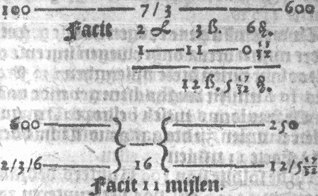 100 — 7/3 — 600
Facit 2 £. 3 ß. 6 ₰.
1 — 11 — 0 17/32
12 ß. 5 17/32 ₰.
600 } — { 250
2/3/6 } 16 { 12/5 17/32
Facit 11 mijlen.